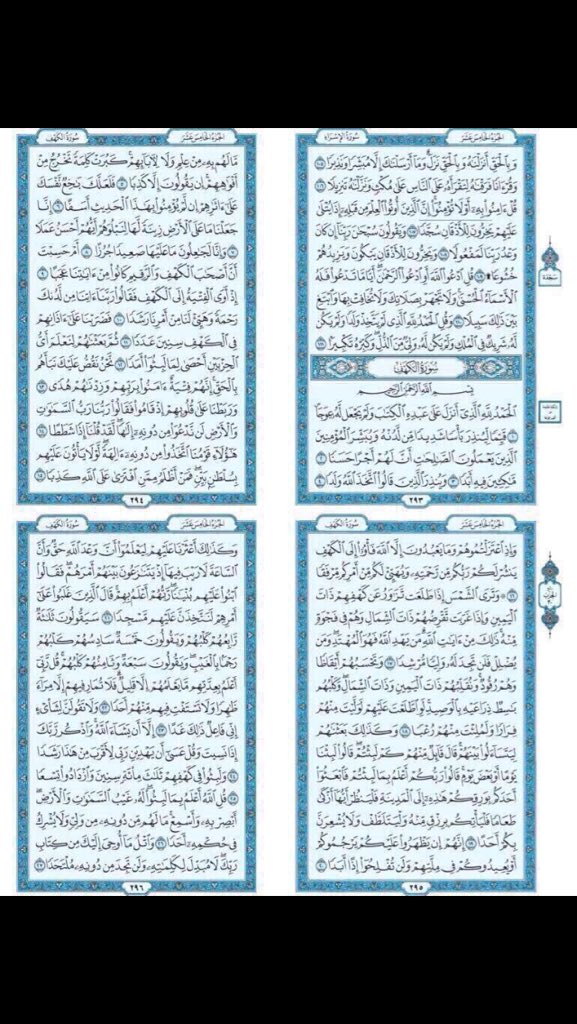 الجزء الخامس عشر
سورة الإسراء
وبالحق أنزلنه وبالحق نزل وما أرسلنك إلا مبشرا ونذيرا ١٠٥
وقرءانا فرقنه لتقرأه على الناس على مكث ونزلنه تنزيلا ١٠٦
قل ءامنوا به أو لا تؤمنوا إن الذين أوتوا العلم من قبله إذا يتلى
عليهم يخرون للأذقان سجدا ١٠٧ ويقولون سبحن ربنا إن كان
وعد ربنا لمفعولا ١٠٨ ويخرون للأذقان يبكون ويزيدهم
خشوعا ١٠٩ قل ادعوا الله أو ادعوا الرحمن أيا ما تدعوا فله
الأسماء الحسنى ولا تجهر بصلاتك ولا تخافت بها وابتغ
بين ذلك سبيلا ١١٠ وقل الحمد لله الذي لم يتخذ ولدا ولم يكن
له شريك في الملك ولم يكن له ولي من الذل وكبره تكبيرا ١١١
سورة الكهف
بسم الله الرحمن الرحيم
الحمد لله الذي أنزل على عبده الكتب ولم يجعل له عوجا ١
قيما لينذر بأسا شديدا من لدنه ويبشر المؤمنين
الذين يعملون الصلحت أن لهم أجرا حسنا ٢
مكثين فيه أبدا ٣ وينذر الذين قالوا اتخذ الله ولدا ٤
٢٩٣
سجدة
الجزء الخامس عشر
سورة الكهف
ما لهم به من علم ولا لءابائهم كبرت كلمة تخرج من
أفوههم إن يقولون إلا كذبا ٥ فلعلك بخع نفسك
على ءاثرهم إن لم يؤمنوا بهذا الحديث أسفا ٦ إنا
جعلنا ما على الأرض زينة لها لنبلوهم أيهم أحسن عملا
٧ وإنا لجعلون ما عليها صعيدا جرزا ٨ أم حسبت
أن أصحب الكهف والرقيم كانوا من ءايتنا عجبا ٩
إذ أوى الفتية إلى الكهف فقالوا ربنا ءاتنا من لدنك
رحمة وهيئ لنا من أمرنا رشدا ١٠ فضربنا على ءاذانهم
في الكهف سنين عددا ١١ ثم بعثنهم لنعلم أي
الحزبين أحصى لما لبثوا أمدا ١٢ نحن نقص عليك نبأهم
بالحق إنهم فتية ءامنوا بربهم وزدنهم هدى ١٣
وربطنا على قلوبهم إذ قاموا فقالوا ربنا رب السموت
والأرض لن ندعوا من دونه إلها لقد قلنا إذا شططا ١٤
هؤلاء قومنا اتخذوا من دونه ءالهة لولا يأتون عليهم
بسلطن بين فمن أظلم ممن افترى على الله كذبا ١٥
٢٩٤
الجزء الخامس عشر
سورة الكهف
وإذ اعتزلتموهم وما يعبدون إلا الله فأووا إلى الكهف
ينشر لكم ربكم من رحمته ويهيئ لكم من أمركم مرفقا
١٦ وترى الشمس إذا طلعت تزور عن كهفهم ذات
اليمين وإذا غربت تقرضهم ذات الشمال وهم في فجوة
منه ذلك من ءايت الله من يهد الله فهو المهتد ومن
يضلل فلن تجد له وليا مرشدا ١٧ وتحسبهم أيقاظا
وهم رقود ونقلبهم ذات اليمين وذات الشمال وكلبهم
بسط ذراعيه بالوصيد لو اطلعت عليهم لوليت منهم
فرارا ولملئت منهم رعبا ١٨ وكذلك بعثنهم
ليتساءلوا بينهم قال قائل منهم كم لبثتم قالوا لبثنا
يوما أو بعض يوم قالوا ربكم أعلم بما لبثتم فابعثوا
أحدكم بورقكم هذه إلى المدينة فلينظر أيها أزكى
طعاما فليأتكم برزق منه وليتلطف ولا يشعرن
بكم أحدا ١٩ إنهم إن يظهروا عليكم يرجموكم
أو يعيدوكم في ملتهم ولن تفلحوا إذا أبدا ٢٠
٢٩٥
الجزء الخامس عشر
سورة الكهف
وكذلك أعثرنا عليهم ليعلموا أن وعد الله حق وأن
الساعة لا ريب فيها إذ يتنزعون بينهم أمرهم فقالوا
ابنوا عليهم بنينا ربهم أعلم بهم قال الذين غلبوا على
أمرهم لنتخذن عليهم مسجدا ٢١ سيقولون ثلثة
رابعهم كلبهم ويقولون خمسة سادسهم كلبهم
رجما بالغيب ويقولون سبعة وثامنهم كلبهم قل ربي
أعلم بعدتهم ما يعلمهم إلا قليل فلا تمار فيهم إلا مراء
ظهرا ولا تستفت فيهم منهم أحدا ٢٢ ولا تقولن لشايء
إني فاعل ذلك غدا ٢٣ إلا أن يشاء الله واذكر ربك
إذا نسيت وقل عسى أن يهدين ربي لأقرب من هذا رشدا
٢٤ ولبثوا في كهفهم ثلث مائة سنين وازدادوا تسعا
٢٥ قل الله أعلم بما لبثوا له غيب السموت والأرض
أبصر به وأسمع ما لهم من دونه من ولي ولا يشرك
في حكمه أحدا ٢٦ واتل ما أوحي إليك من كتاب
ربك لا مبدل لكلمته ولن تجد من دونه ملتحدا ٢٧
٢٩٦